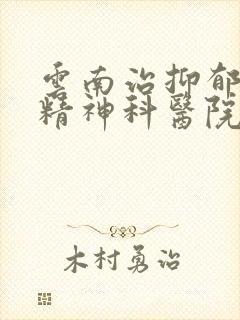 雲南治抑郁
精神科醫院
木村勇治